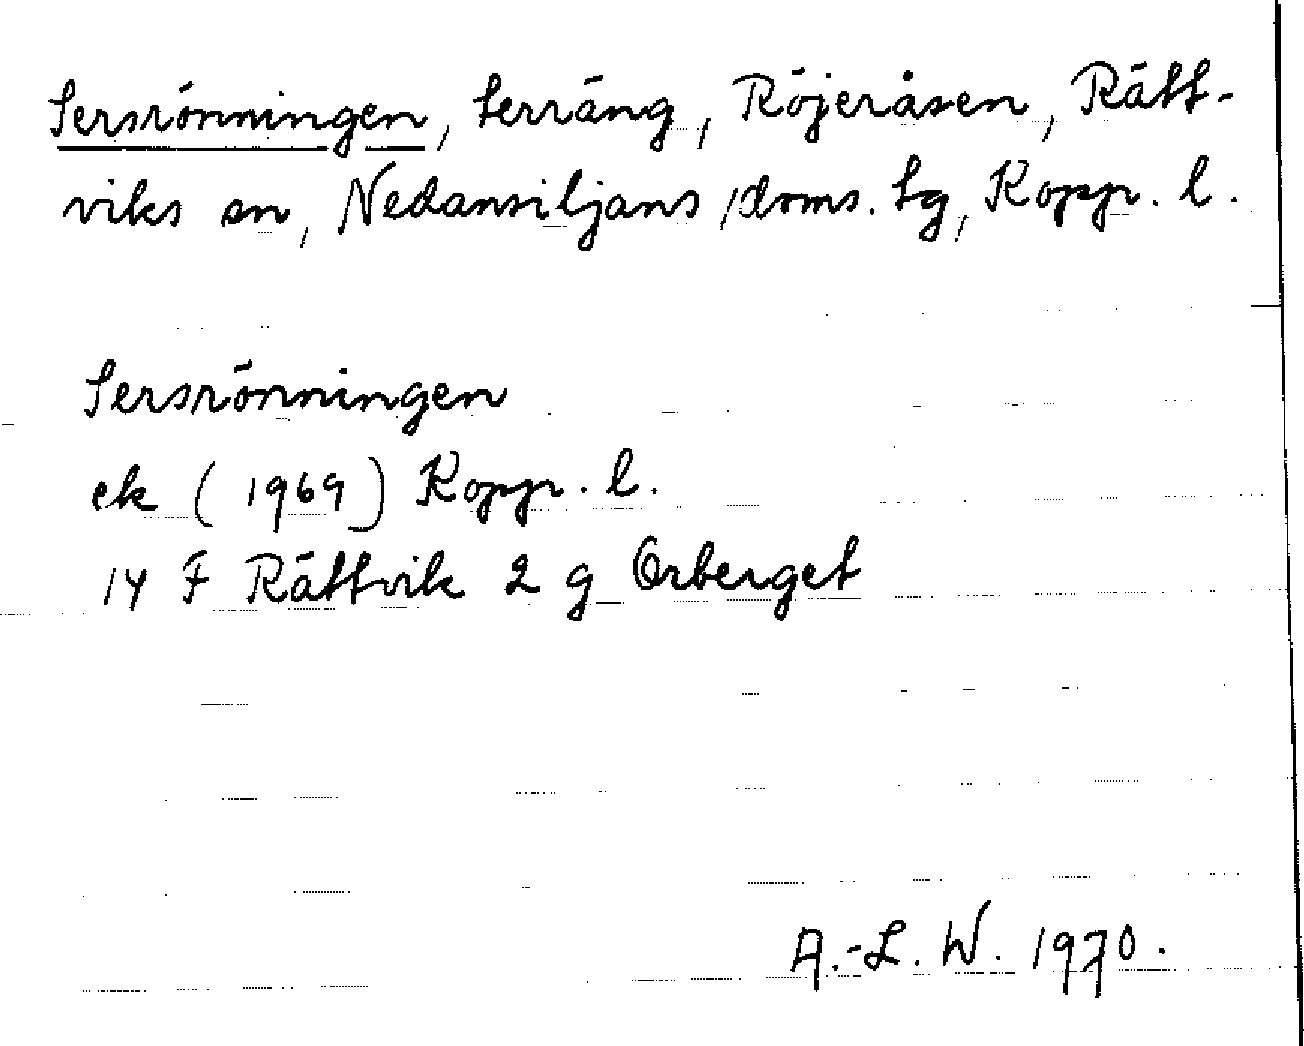 Sersrönningen, terräng, Röjeråsen, Rätt-
viks sn, Nedansiljans doms. tg, Kopp. l.
Sersrönningen
ek (1969) Kopp. l.
14 F Rättvik 2 g Orberget
A.-L. W. 1970.